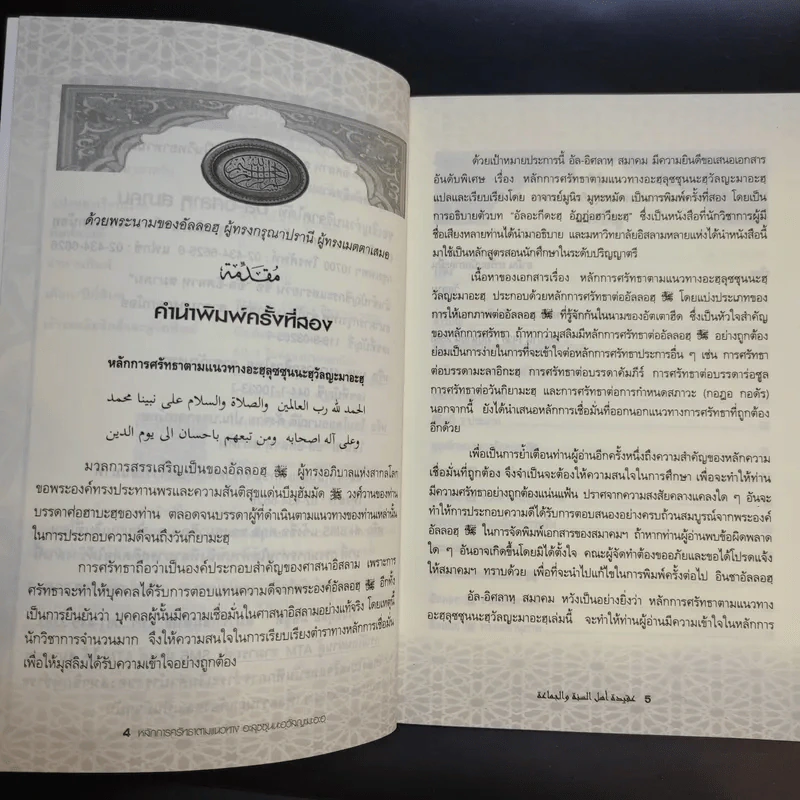 ด้วยพระนามของอัลลอฮฺ ผู้ทรงกรุณาปรานี ผู้ทรงเมตตาเสมอ
مُقَدِّمَة
คำนำพิมพ์ครั้งที่สอง
หลักการศรัทธาตามแนวทางอะฮฺลุซซุนนะฮฺวัลญะมาอะฮฺ
الحمد لله رب العالمين والصلاة والسلام على نبينا محمد
وعلى آله اصحابه ومن تبعهم باحسان الى يوم الدين
มวลการสรรเสริญเป็นของอัลลอฮฺ ﷻ ผู้ทรงอภิบาลแห่งสากลโลก
ขอพระองค์ทรงประทานพรและความสันติสุขแด่นบีมุฮัมมัด ﷺ วงศ์วานของท่าน
บรรดาศ่อฮาบะฮฺของท่าน ตลอดจนบรรดาผู้ที่ดำเนินตามแนวทางของท่านเหล่านั้น
ในการประกอบความดีจนถึงวันกิยามะฮฺ
การศรัทธาถือว่าเป็นองค์ประกอบสำคัญของศาสนาอิสลาม เพราะการ
ศรัทธาจะทำให้บุคคลได้รับการตอบแทนความดีจากพระองค์อัลลอฮฺ ﷻ อีกทั้ง
เป็นการยืนยันว่า บุคคลผู้นั้นมีความเชื่อมั่นในศาสนาอิสลามอย่างแท้จริง โดยเหตุนี้
นักวิชาการจำนวนมาก จึงให้ความสนใจในการเรียบเรียงตำราทางหลักการเชื่อมั่น
เพื่อให้มุสลิมได้รับความเข้าใจอย่างถูกต้อง
4 หลักการศรัทธาตามแนวทาง อะฮฺลุซซุนนะฮฺวัลญะมาอะฮฺ
ด้วยเป้าหมายประการนี้ อัล-อิศลาหฺ สมาคม มีความยินดีขอเสนอเอกสาร
อันดับพิเศษ เรื่อง หลักการศรัทธาตามแนวทางอะฮฺลุซซุนนะฮฺวัลญะมาอะฮฺ
แปลและเรียบเรียงโดย อาจารย์มุนีร มูหะหมัด เป็นการพิมพ์ครั้งที่สอง โดยเป็น
การอธิบายตัวบท "อัลอะกีดะฮฺ อัฏฏ่อฮาวียะฮฺ" ซึ่งเป็นหนังสือที่นักวิชาการผู้มี
ชื่อเสียงหลายท่านได้นำมาอธิบาย และมหาวิทยาลัยอิสลามหลายแห่งได้นำหนังสือนี้
มาใช้เป็นหลักสูตรสอนนักศึกษาในระดับปริญญาตรี
เนื้อหาของเอกสารเรื่อง หลักการศรัทธาตามแนวทางอะฮฺลุซซุนนะฮฺ
วัลญะมาอะฮฺ ประกอบด้วยหลักการศรัทธาต่ออัลลอฮฺ ﷻ โดยแบ่งประเภทของ
การให้เอกภาพต่ออัลลอฮฺ ﷻ ที่รู้จักกันในนามของอัตเตาฮีด ซึ่งเป็นหัวใจสำคัญ
ของหลักการศรัทธา ถ้าหากว่ามุสลิมมีหลักการศรัทธาต่ออัลลอฮฺ ﷻ อย่างถูกต้อง
ย่อมเป็นการง่ายในการที่จะเข้าใจต่อหลักการศรัทธาประการอื่น ๆ เช่น การศรัทธา
ต่อบรรดามะลาอิกะฮฺ การศรัทธาต่อบรรดาคัมภีร์ การศรัทธาต่อบรรดาร่อซูล
การศรัทธาต่อวันกิยามะฮฺ และการศรัทธาต่อการกำหนดสภาวะ (กอฎอ กอดัร)
นอกจากนี้ ยังได้นำเสนอหลักการเชื่อมั่นที่ออกนอกแนวทางการศรัทธาที่ถูกต้อง
อีกด้วย
เพื่อเป็นการย้ำเตือนท่านผู้อ่านอีกครั้งหนึ่งถึงความสำคัญของหลักความ
เชื่อมั่นที่ถูกต้อง จึงจำเป็นจะต้องให้ความสนใจในการศึกษา เพื่อจะทำให้ท่าน
มีความศรัทธาอย่างถูกต้องแน่นแฟ้น ปราศจากความสงสัยคลางแคลงใด ๆ อันจะ
ทำให้การประกอบความดีได้รับการตอบสนองอย่างครบถ้วนสมบูรณ์จากพระองค์
อัลลอฮฺ ﷻ ในการจัดพิมพ์เอกสารของสมาคมฯ ถ้าหากท่านผู้อ่านพบข้อผิดพลาด
ใด ๆ อันอาจเกิดขึ้นโดยมิได้ตั้งใจ คณะผู้จัดทำต้องขออภัยและขอได้โปรดแจ้ง
ให้สมาคมฯ ทราบด้วย เพื่อที่จะนำไปแก้ไขในการพิมพ์ครั้งต่อไป อินชาอัลลอฮฺ
อัล-อิศลาหฺ สมาคม หวังเป็นอย่างยิ่งว่า หลักการศรัทธาตามแนวทาง
อะฮฺลุซซุนนะฮฺวัลญะมาอะฮฺเล่มนี้ จะทำให้ท่านผู้อ่านมีความเข้าใจในหลักการ
عقيدة أهل السنة والجماعة 5